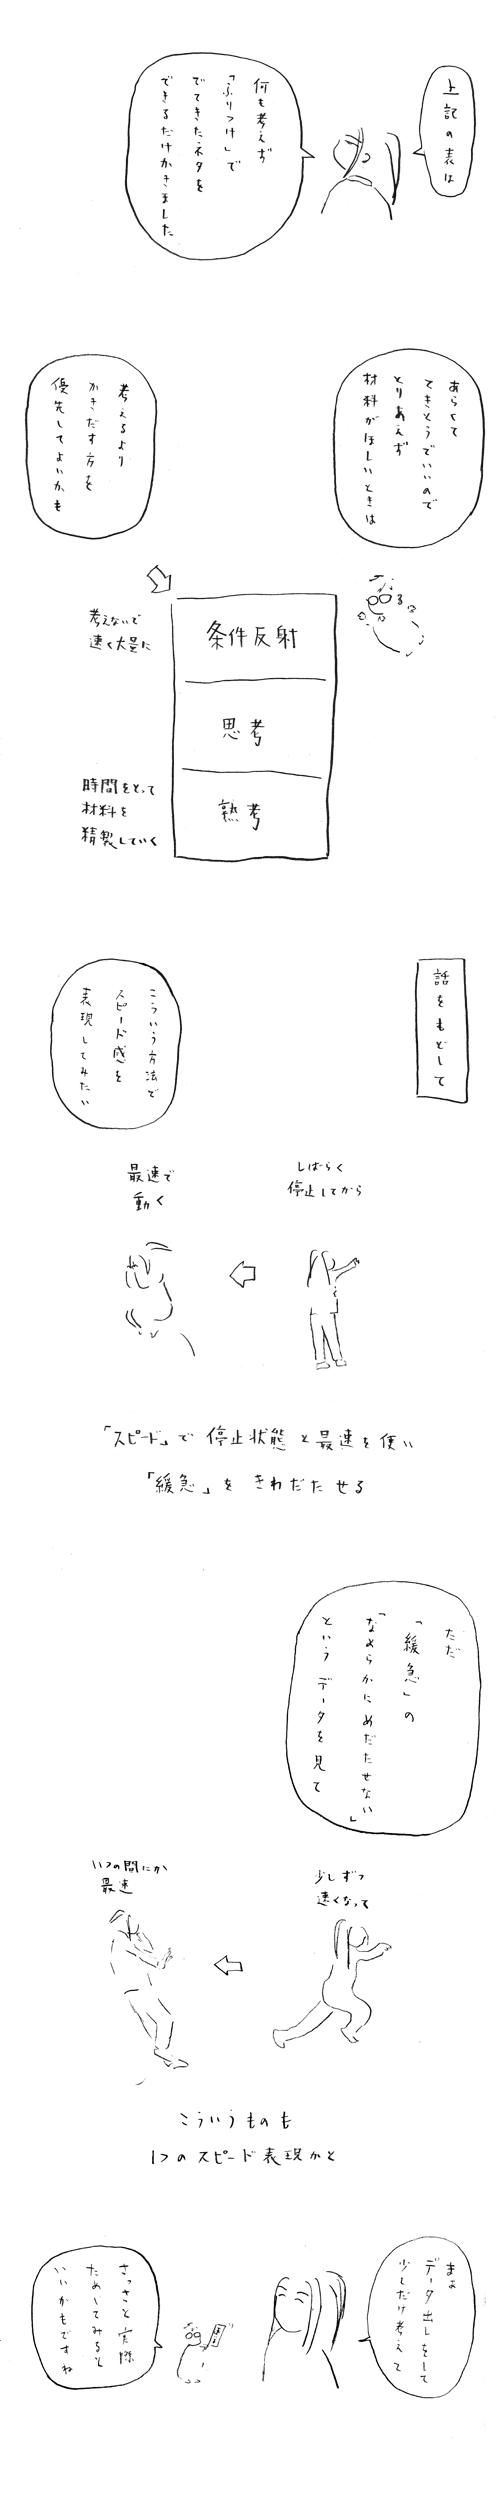 上記の表は
何も考えず
「ふりつけ」で
でてきたネタを
できるだけかきました
あらくて
てきとうでいいので
とりあえず
材料がほしいときは
考えるより
かきだす方を
優先してよいかも
考えないで
速く大量に
条件反射
思考
熟考
時間をとって
材料を
精製していく
話をもどして
こういう方法で
スピード感を
表現してみたい
しばらく
停止してから
最速で
動く
「スピード」で停止状態と最速を使い
「緩急」をきわだたせる
ただ
「緩急」の
「なめらかにめだたせない」
というデータを見て
少しずつ
速くなって
いつの間にか
最速
こういうものも
1つのスピード表現かと
まぁ
データ出しをして
少しだけ考えて
さっさと実際
ためしてみると
いいかもですね